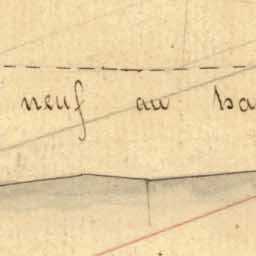 neuf au ba